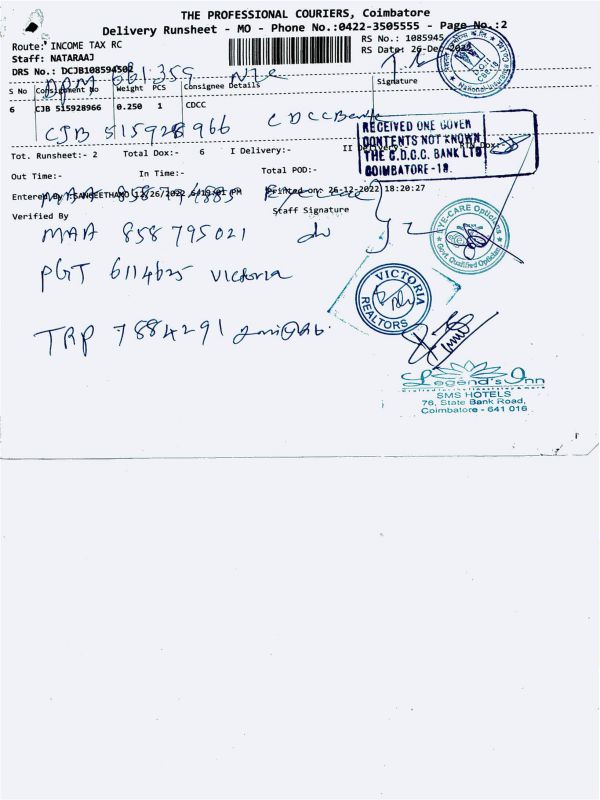 THE PROFESSIONAL COURIERS, Coimbatore
Delivery Runsheet - MO - Phone No.:0422-3505555 - Page No.:2
Route: INCOME TAX RC
RS No.: 1085945
Staff: NATARAAJ
RS Date: 26-Dec-2022
DRS No.: DCJB108594502
661359
S No Consignment No Weight PCS Consignee Details Signature
6 CJB 515928966 0.250 1 CDCC
CJB 515928966 CDCC Bank
RECEIVED ONE COVER
CONTENTS NOT KNOWN
THE C.D.C.C. BANK LTD
COIMBATORE - 18.
Tot. Runsheet:- 2 Total Dox:- 6 I Delivery:- II Delivery:- Dox:-
Out Time:- In Time:- Total POD:-
Entered By : SANGEETHAMO 12/26/2022 PM Printed on: 26-12-2022 18:20:27
Verified By Staff Signature
MAA 858795021 do
EYE-CARE Opticians
Govt. Qualified Optician
PGT 6114625 Victoria
VICTORIA
REALTORS
TRP 7884291
Legend's Inn
SMS HOTELS
76, State Bank Road,
Coimbatore - 641 016